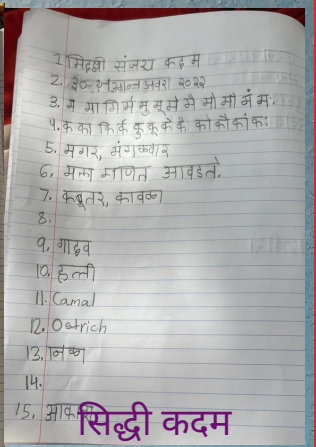 1. सिद्धी संजय कदम
2. २०२२
3. म मा मि मी मु मू मे मै मो मौ मं मः
4. क का कि की कु कू के कै को कौ कां कः
5. मगर, मंगळवार
6. मला गणित आवडते.
7. कबूतर, कावळा
8.
9. गाढव
10. हत्ती
11. Camal
12. Ostrich
13. निळा
14.
15. आकाश
सिद्धी कदम